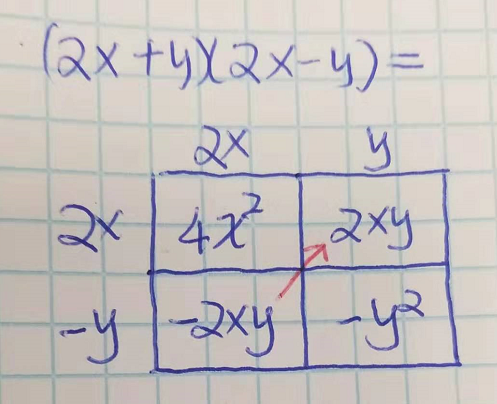 (2x+y)(2x-y)=
2x y
2x 4x² 2xy
-y -2xy -y²